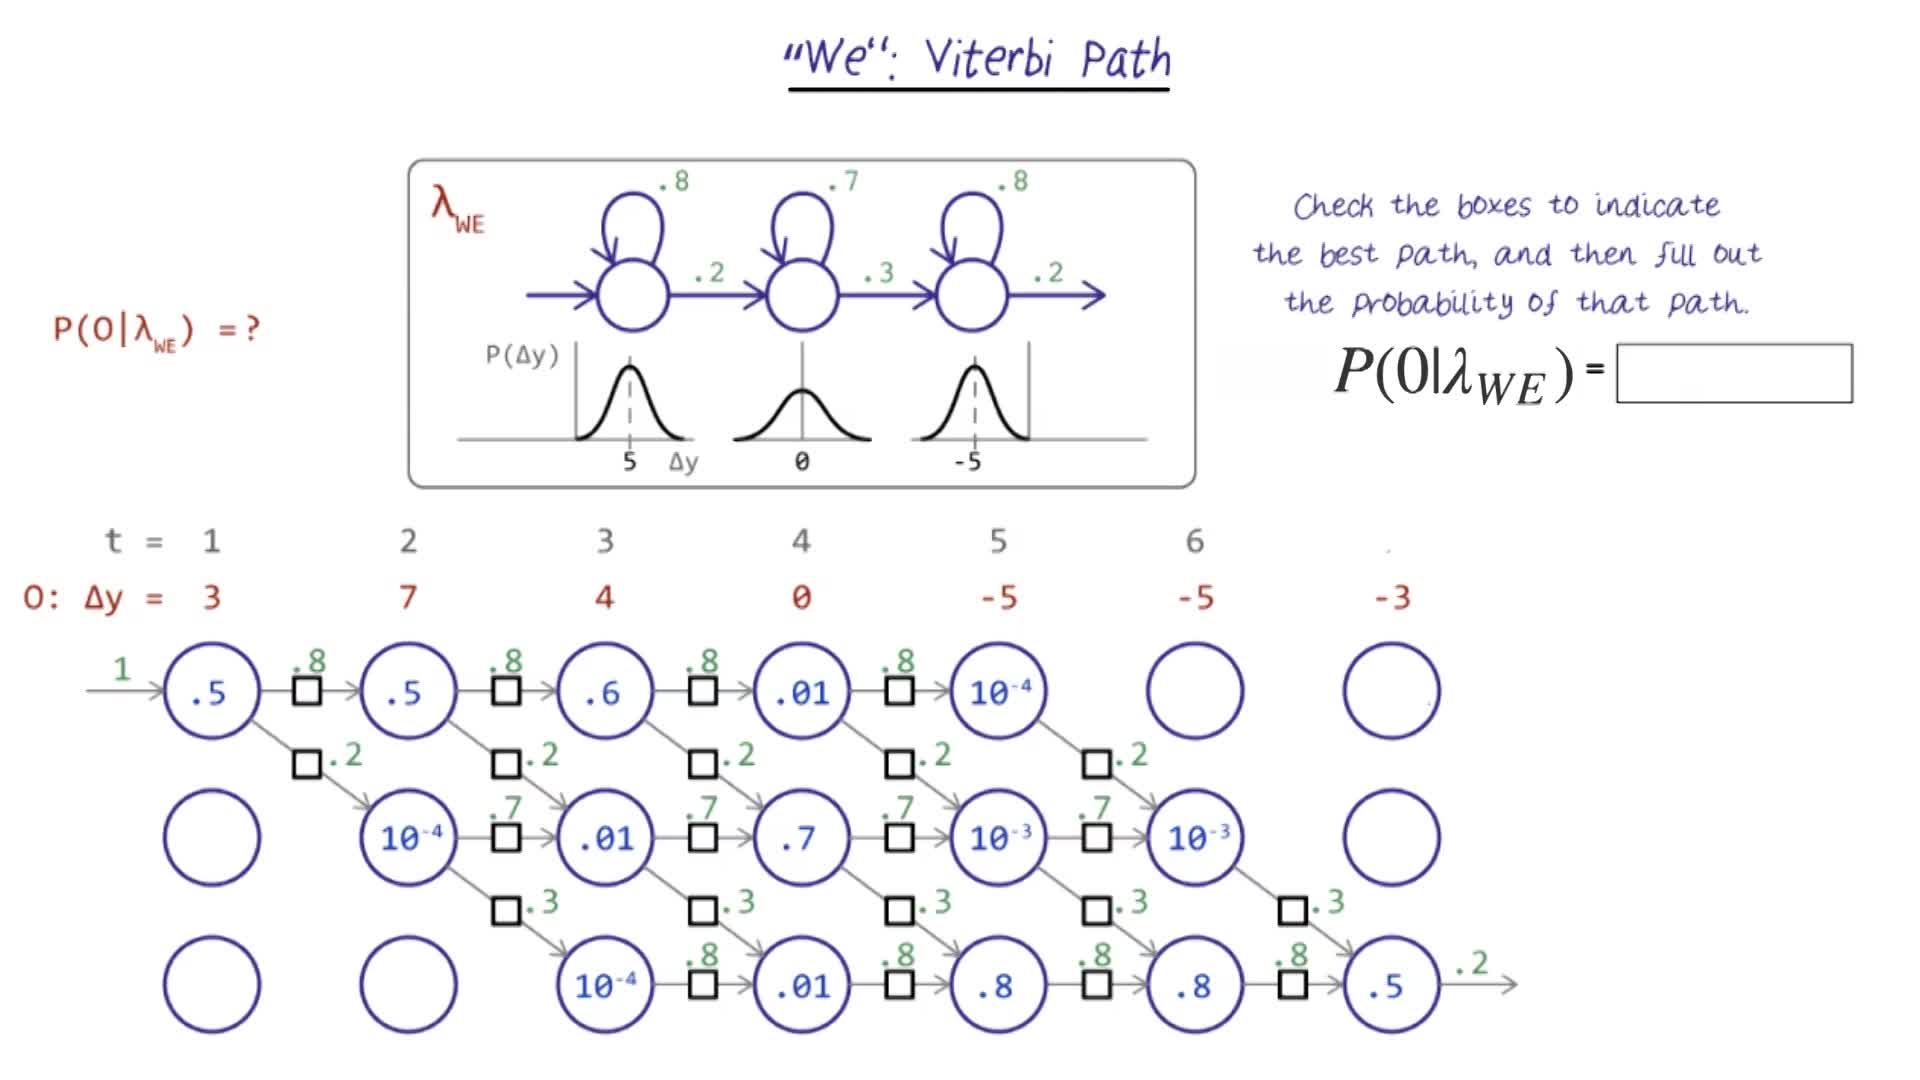 “We“: Viterbi Path
λWE
.8 .7 .8
.2 .3 .2
P(Δy)
5 Δy 0 -5
P(O|λWE) =?
Check the boxes to indicate
the best path, and then fill out
the probability of that path.
P(0|λWE) =
t = 1 2 3 4 5 6
O: Δy = 3 7 4 0 -5 -5 -3
1 .8 .8 .8 .8
.5 .5 .6 .01 10⁻⁴
.2 .2 .2 .2 .2
.7 .7 .7 .7
10⁻⁴ .01 .7 10⁻³ 10⁻³
.3 .3 .3 .3 .3
.8 .8 .8 .8 .2
10⁻⁴ .01 .8 .8 .5